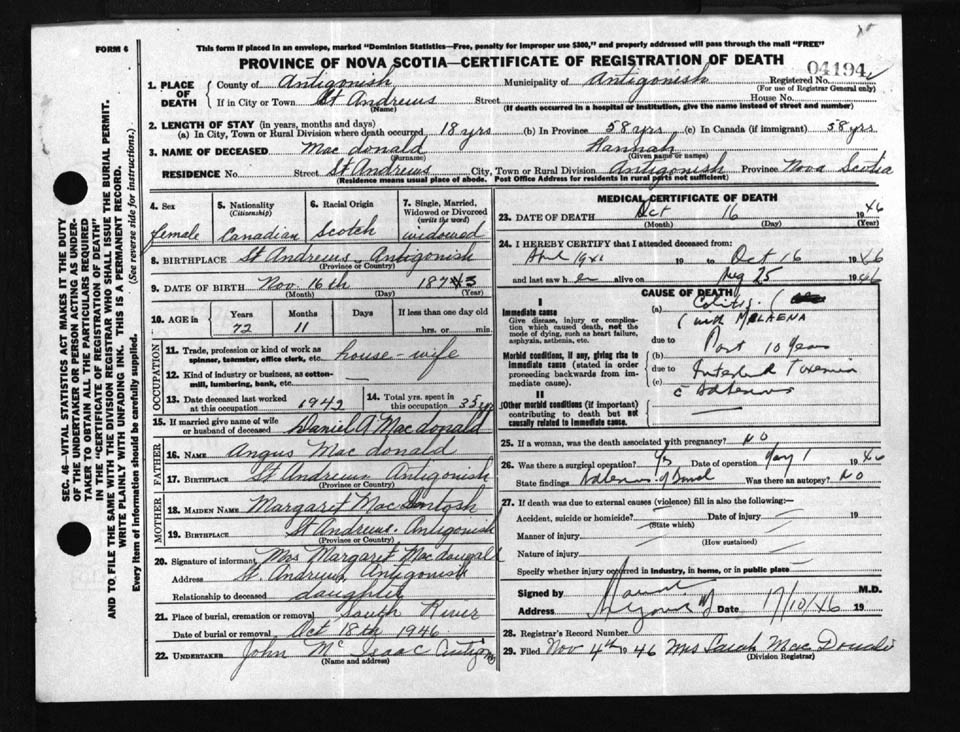 FORM 6
This form if placed in an envelope, marked "Dominion Statistics—Free, penalty for improper use $300," and properly addressed will pass through the mail "FREE"
PROVINCE OF NOVA SCOTIA—CERTIFICATE OF REGISTRATION OF DEATH
04194
1. PLACE OF DEATH
County of Antigonish Municipality of Antigonish Registered No.
(For use of Registrar General only)
If in City or Town St Andrews Street House No.
(Name) (If death occurred in a hospital or institution, give the name instead of street and number)
2. LENGTH OF STAY (in years, months and days)
(a) In City, Town or Rural Division where death occurred 18 yrs (b) In Province 58 yrs (c) In Canada (if immigrant) 58 yrs
3. NAME OF DECEASED Mac donald Hannah
(Surname) (Given name or names)
RESIDENCE No. Street St Andrews City, Town or Rural Division Antigonish Province Nova Scotia
(Residence means usual place of abode. Post Office Address for residents in rural parts not sufficient)
SEC. 46—VITAL STATISTICS ACT MAKES IT THE DUTY
OF THE UNDERTAKER OR PERSON ACTING AS UNDER-
TAKER TO OBTAIN ALL THE PARTICULARS REQUIRED
IN THE "CERTIFICATE OF REGISTRATION OF DEATH"
AND TO FILE THE SAME WITH THE DIVISION REGISTRAR WHO SHALL ISSUE THE BURIAL PERMIT.
WRITE PLAINLY WITH UNFADING INK. THIS IS A PERMANENT RECORD.
Every item of information should be carefully supplied. (See reverse side for instructions.)
4. Sex
female
5. Nationality
(Citizenship)
Canadian
6. Racial Origin
Scotch
7. Single, Married, Widowed or Divorced
(write the word)
widowed
8. BIRTHPLACE St Andrews Antigonish
(Province or Country)
9. DATE OF BIRTH Nov. 16th 187 3
(Month) (Day) (Year)
10. AGE in Years Months Days If less than one day old
72 11 hrs. or min.
OCCUPATION
11. Trade, profession or kind of work as
spinner, teamster, office clerk, etc. house-wife
12. Kind of industry or business, as cotton-
mill, lumbering, bank, etc. —
13. Date deceased last worked
at this occupation 1942
14. Total yrs. spent in
this occupation 35 yrs
15. If married give name of wife
or husband of deceased Daniel A Mac donald
FATHER
16. NAME Angus Mac donald
17. BIRTHPLACE St Andrews Antigonish
(Province or Country)
MOTHER
18. MAIDEN NAME Margaret Mac Intosh
19. BIRTHPLACE St Andrews. Antigonish
(Province or Country)
20. Signature of informant Mrs Margaret Mac dougald
Address St. Andrews, Antigonish
Relationship to deceased daughter
21. Place of burial, cremation or removal South River
Date of burial or removal Oct 18th 1946
22. UNDERTAKER John Mc Isaac Antigonish
(Name and address)
MEDICAL CERTIFICATE OF DEATH
23. DATE OF DEATH Oct 16 1946
(Month) (Day) (Year)
24. I HEREBY CERTIFY that I attended deceased from:
19 to Oct 16 1946
and last saw h er alive on Aug 25 1946
CAUSE OF DEATH
I
Immediate cause
Give disease, injury or complica-
tion which caused death, not the
mode of dying, such as heart failure,
asphyxia, asthenia, etc.
(a) Colitis (
( with MELAENA
due to Past 10 Years
Morbid conditions, if any, giving rise to
immediate cause (stated in order
proceeding backwards from im-
mediate cause).
(b)
due to Toxemia
(c)
II
Other morbid conditions (if important)
contributing to death but not
causally related to immediate cause. —
25. If a woman, was the death associated with pregnancy? NO
26. Was there a surgical operation? Yes Date of operation May 1 1946
State findings of Bowel Was there an autopsy? NO
27. If death was due to external causes (violence) fill in also the following:—
Accident, suicide or homicide? Date of injury 19
(State which)
Manner of injury
(How sustained)
Nature of injury
Specify whether injury occurred in industry, in home, or in public place
Signed by M.D.
Address Date 17/10/46 19
28. Registrar's Record Number
29. Filed Nov 4th 1946 Mrs Sarah Mac Donald
(Division Registrar)